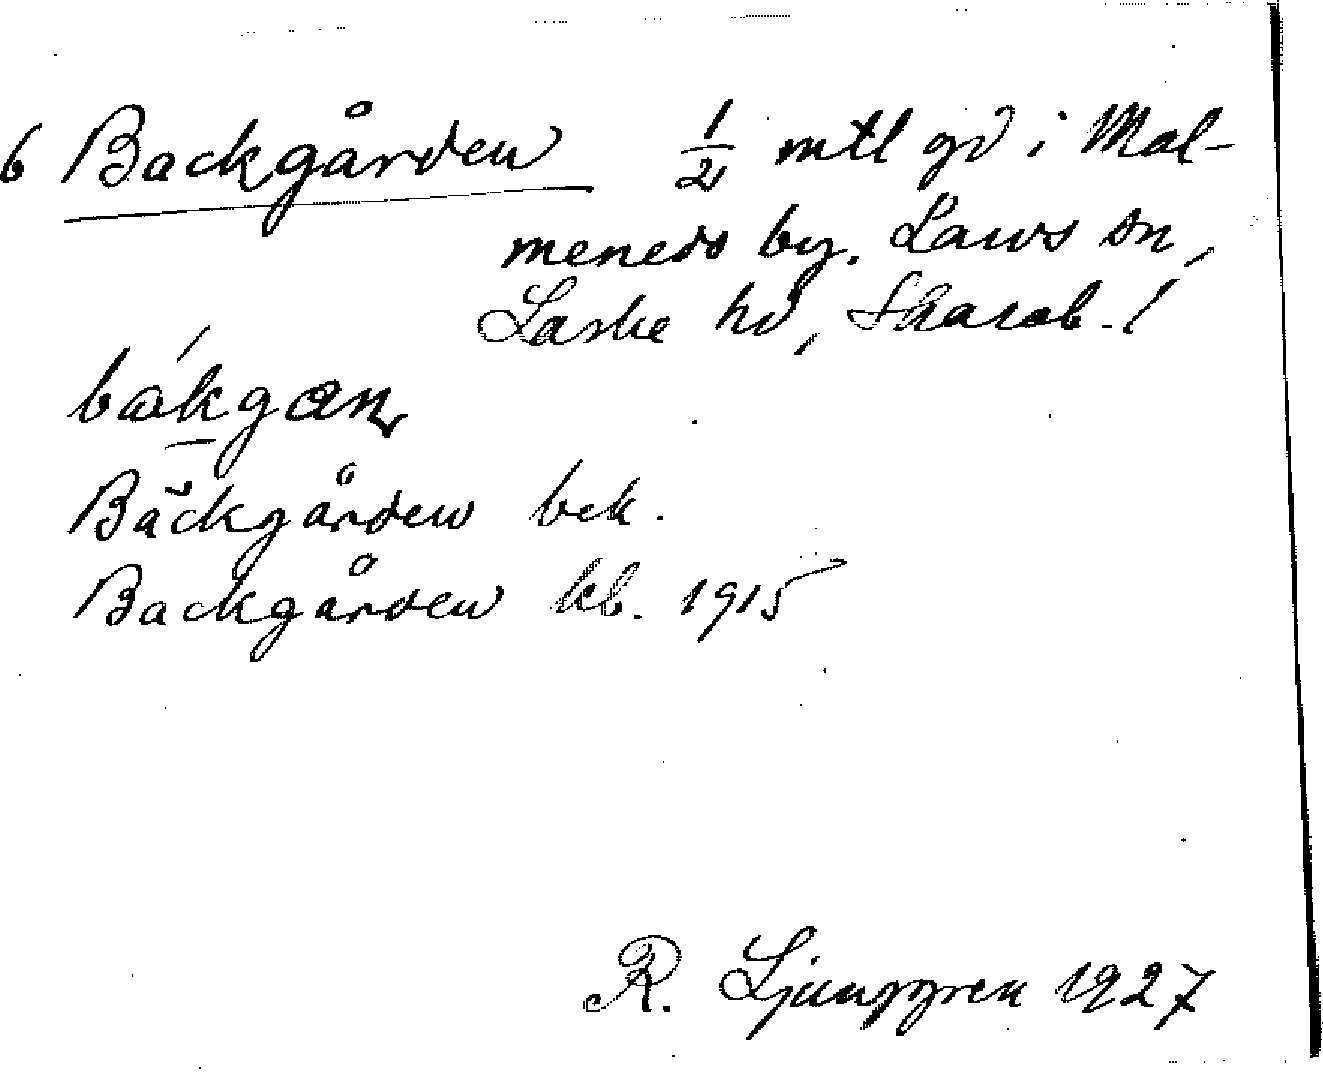 6 Backgården 1/2 mtl gd i Mal-
meneds by. Larvs sn,
Laske hd, Skarab. l
bákgan
Backgården bek.
Backgården kb. 1915
R. Ljunggren 1927